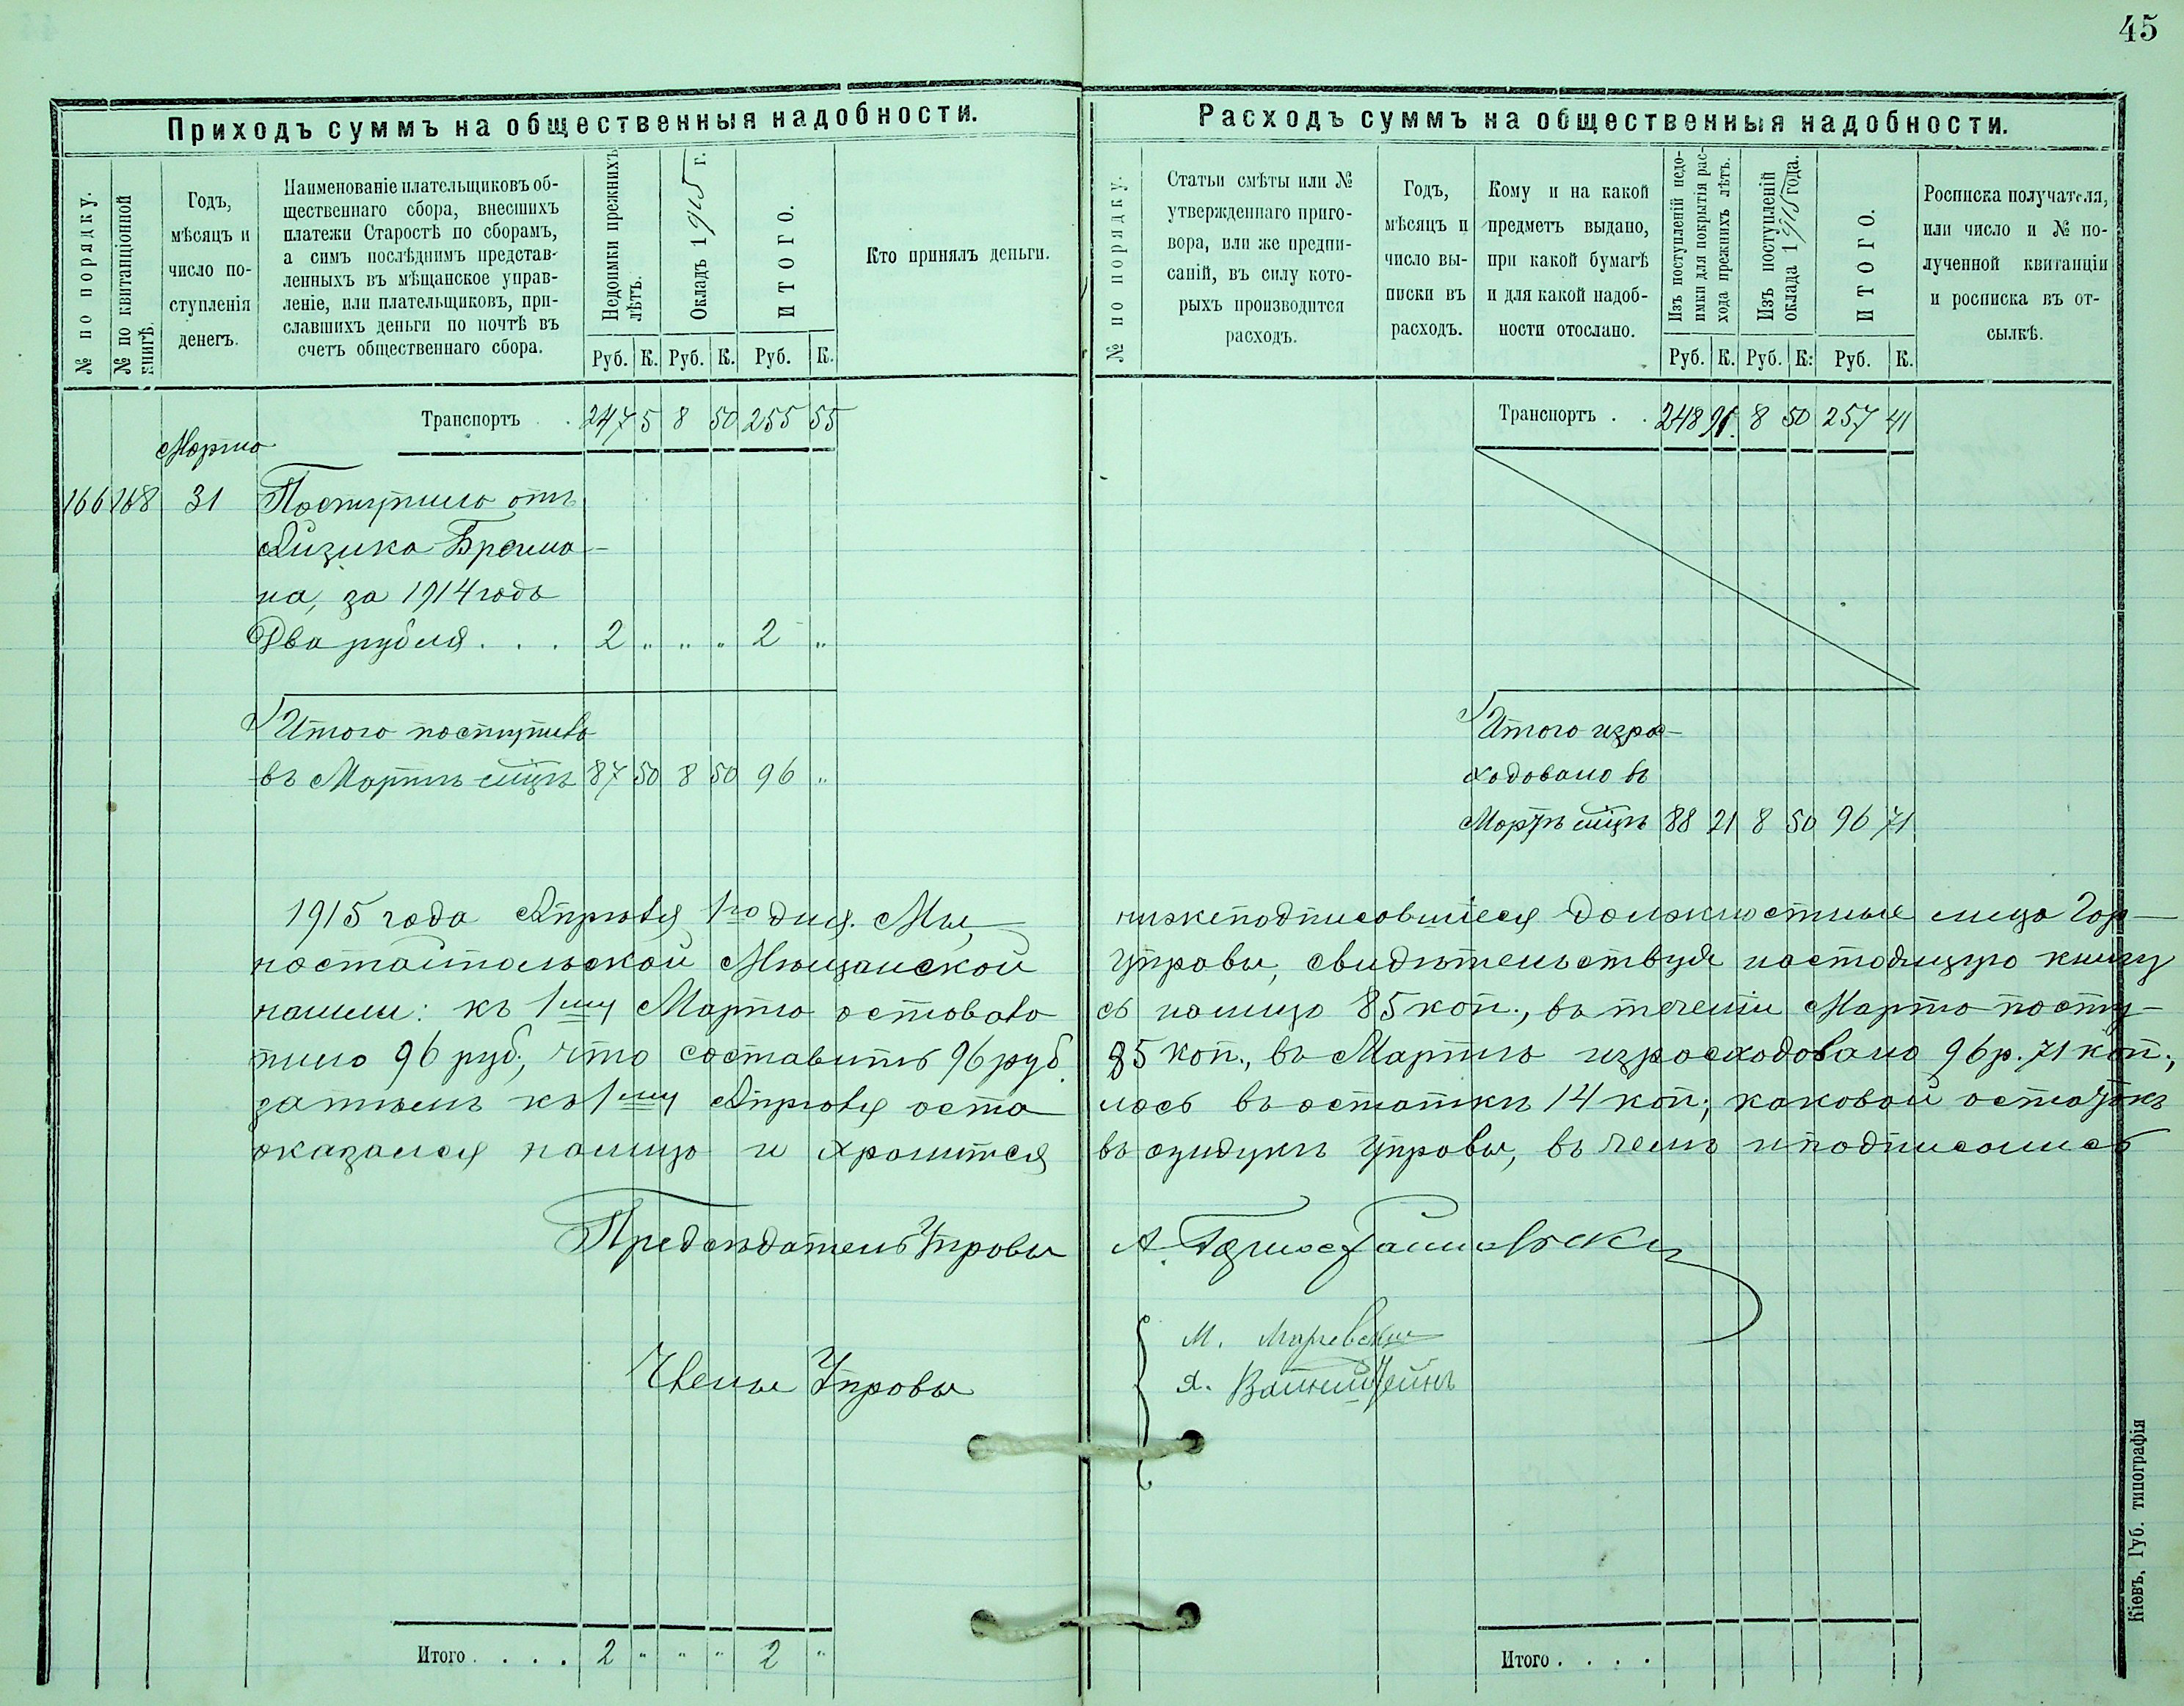 45
Приходъ суммъ на общественныя надобности.
№ по порядку.
№ по квитанціонной
книгѣ.
Годъ,
мѣсяцъ и
число по-
ступленія
денегъ.
Наименованіе плательщиковъ об-
щественнаго сбора, внесшихъ
платежи Старостѣ по сборамъ,
а симъ послѣднимъ представ-
ленныхъ въ мѣщанское управ-
леніе, или плательщиковъ, при-
славшихъ деньги по почтѣ въ
счетъ общественнаго сбора.
Недоимки прежнихъ
лѣтъ.
Окладъ 1915 г.
ИТОГО.
Кто принялъ деньги.
Руб. К. Руб. К. Руб. К.
Транспортъ . . 247 5 8 50 255 55
Марта
166 168 31 Поступило отъ
Айзика Брагма-
на, за 1914 годъ
Два рубля . . . 2 " " " 2 "
Итого поступило
въ Мартѣ мцѣ 87 50 8 50 96 "
Расходъ суммъ на общественныя надобности.
№ по порядку.
Статьи смѣты или №
утвержденнаго приго-
вора, или же предпи-
саній, въ силу кото-
рыхъ производится
расходъ.
Годъ,
мѣсяцъ и
число вы-
писки въ
расходъ.
Кому и на какой
предметъ выдано,
при какой бумагѣ
и для какой надоб-
ности отослано.
Изъ поступленій недо-
имки для покрытія рас-
хода прежнихъ лѣтъ.
Изъ поступленій
оклада 1915 года.
ИТОГО.
Росписка получателя,
или число и № по-
лученной квитанціи
и росписка въ от-
сылкѣ.
Руб. К. Руб. К: Руб. К.
Транспортъ . . 248 91. 8 50 257 41
Итого изра-
ходовано въ
Мартѣ мцѣ 88 21 8 50 96 71
1915 года Апрѣля 1го дня. Мы, нижеподписавшіеся должностные лица Гор-
ностайпольской Мѣщанской Управы, свидѣтельствуя настоящую книгу
нашли: къ 1му Марта оставало сь налицо 85 коп., въ теченіи Марта посту-
пило 96 руб., что составитъ 96 руб. 85 коп., въ Мартѣ израсходовано 96 р. 71 коп.,
затѣмъ къ 1му Апрѣля оста лось въ остаткѣ 14 коп., каковой остатокъ
оказался налицо и хранится въ сундукѣ Управы, въ чемъ и подписались
Предсѣдатель Управы А.
Члены Управы М.
Я. Вайнштейнъ
Итого . . . . 2 " " " 2 "
Итого . . . .
Кіевъ, Губ. типографія